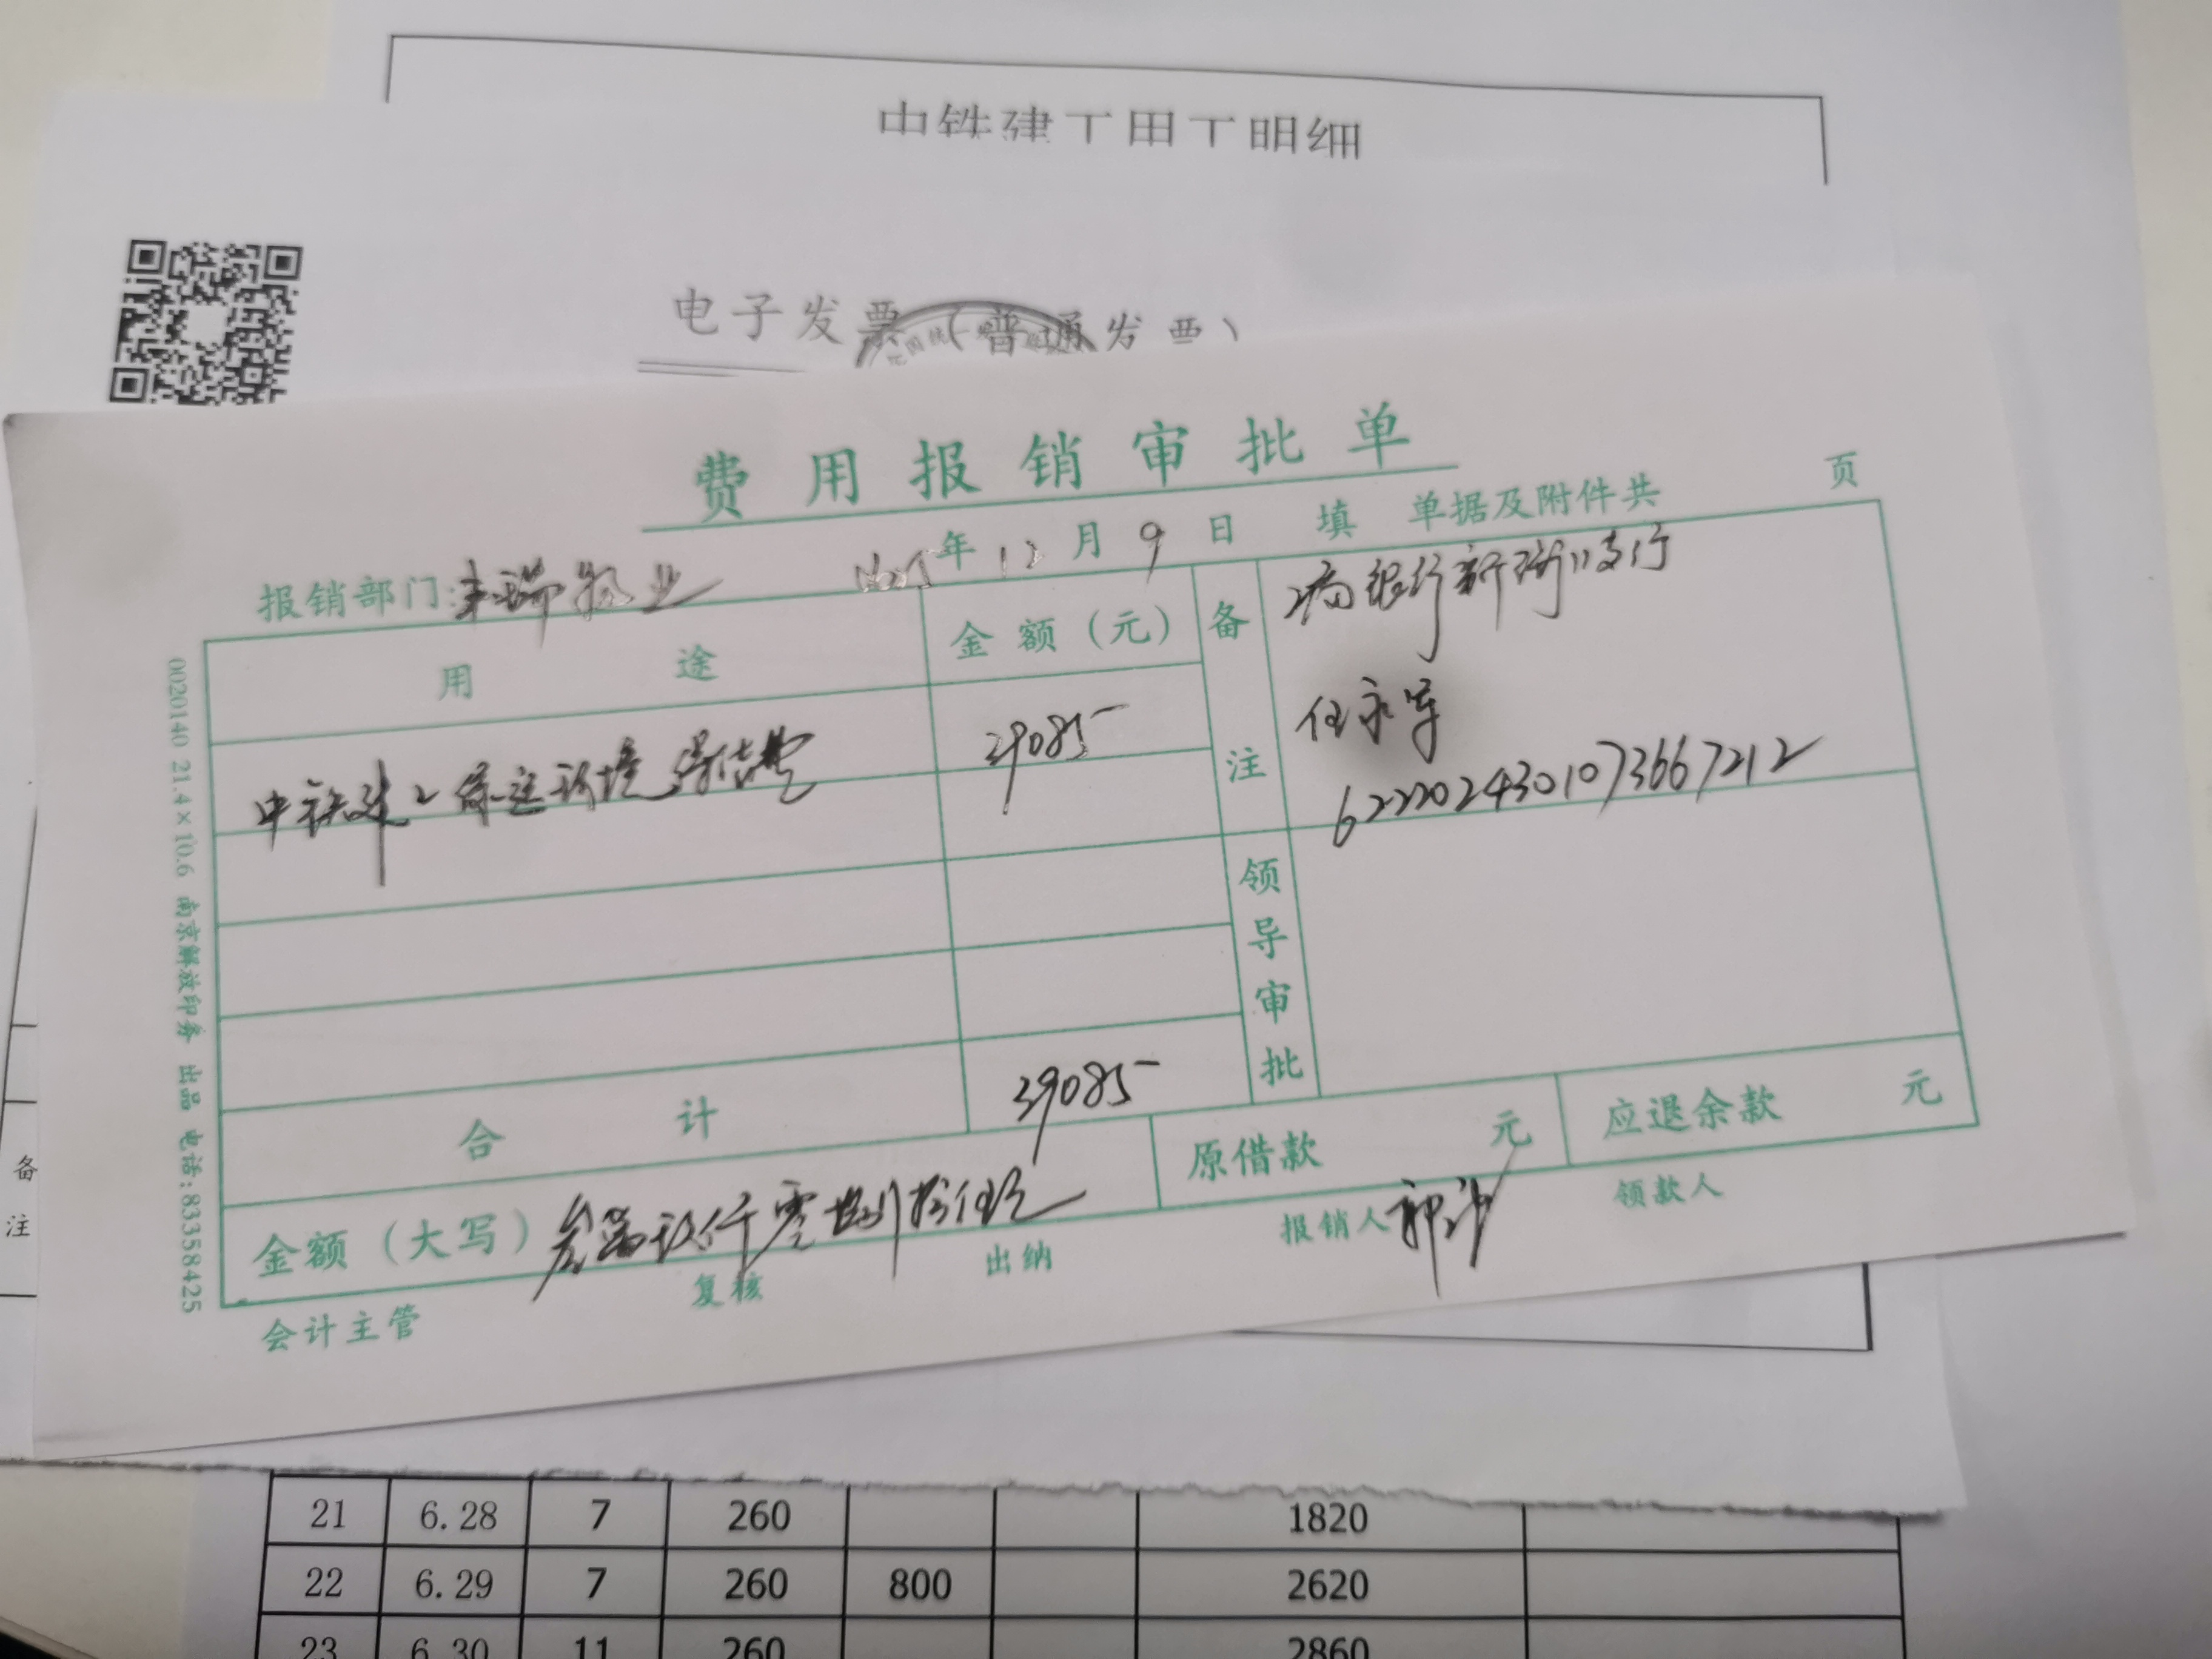 中铁建工用工明细
电子发票（普通发票）
费用报销审批单
报销部门: 瑞物业 年 12 月 9 日 填 单据及附件共 页
用途 金额（元） 备注 银行新街口支行
任永军
6222024301073667212
中铁建工 环境保洁费 39085-
领导审批
合计 39085-
金额（大写） 叁万玖仟零捌拾伍元 原借款 元 应退余款 元
会计主管 复核 出纳 报销人 领款人
0020140 21.4×10.6 南京解放印务 出品 电话:83358425
备
注
21 6.28 7 260 1820
22 6.29 7 260 800 2620
23 6.30 11 260 2860